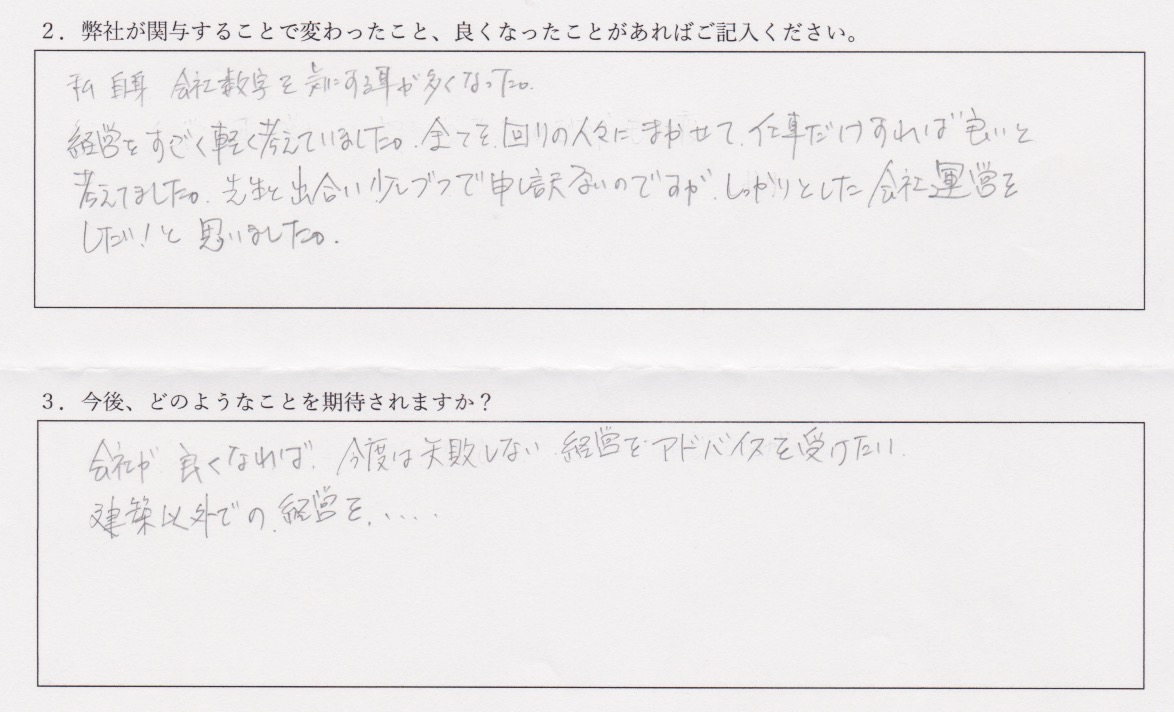 2．弊社が関与することで変わったこと、良くなったことがあればご記入ください。
私自身 会社数字を気にする事が多くなった。
経営をすごく軽く考えていました。全てを、回りの人々にまかせて、仕事だけすれば良いと
考えてました。先生と出合い少しづつで申し訳ないのですが、しっかりとした会社運営を
したい！と思いました。
3．今後、どのようなことを期待されますか？
会社が良くなれば、今度は失敗しない経営をアドバイスを受けたい。
建築以外での、経営を、・・・・